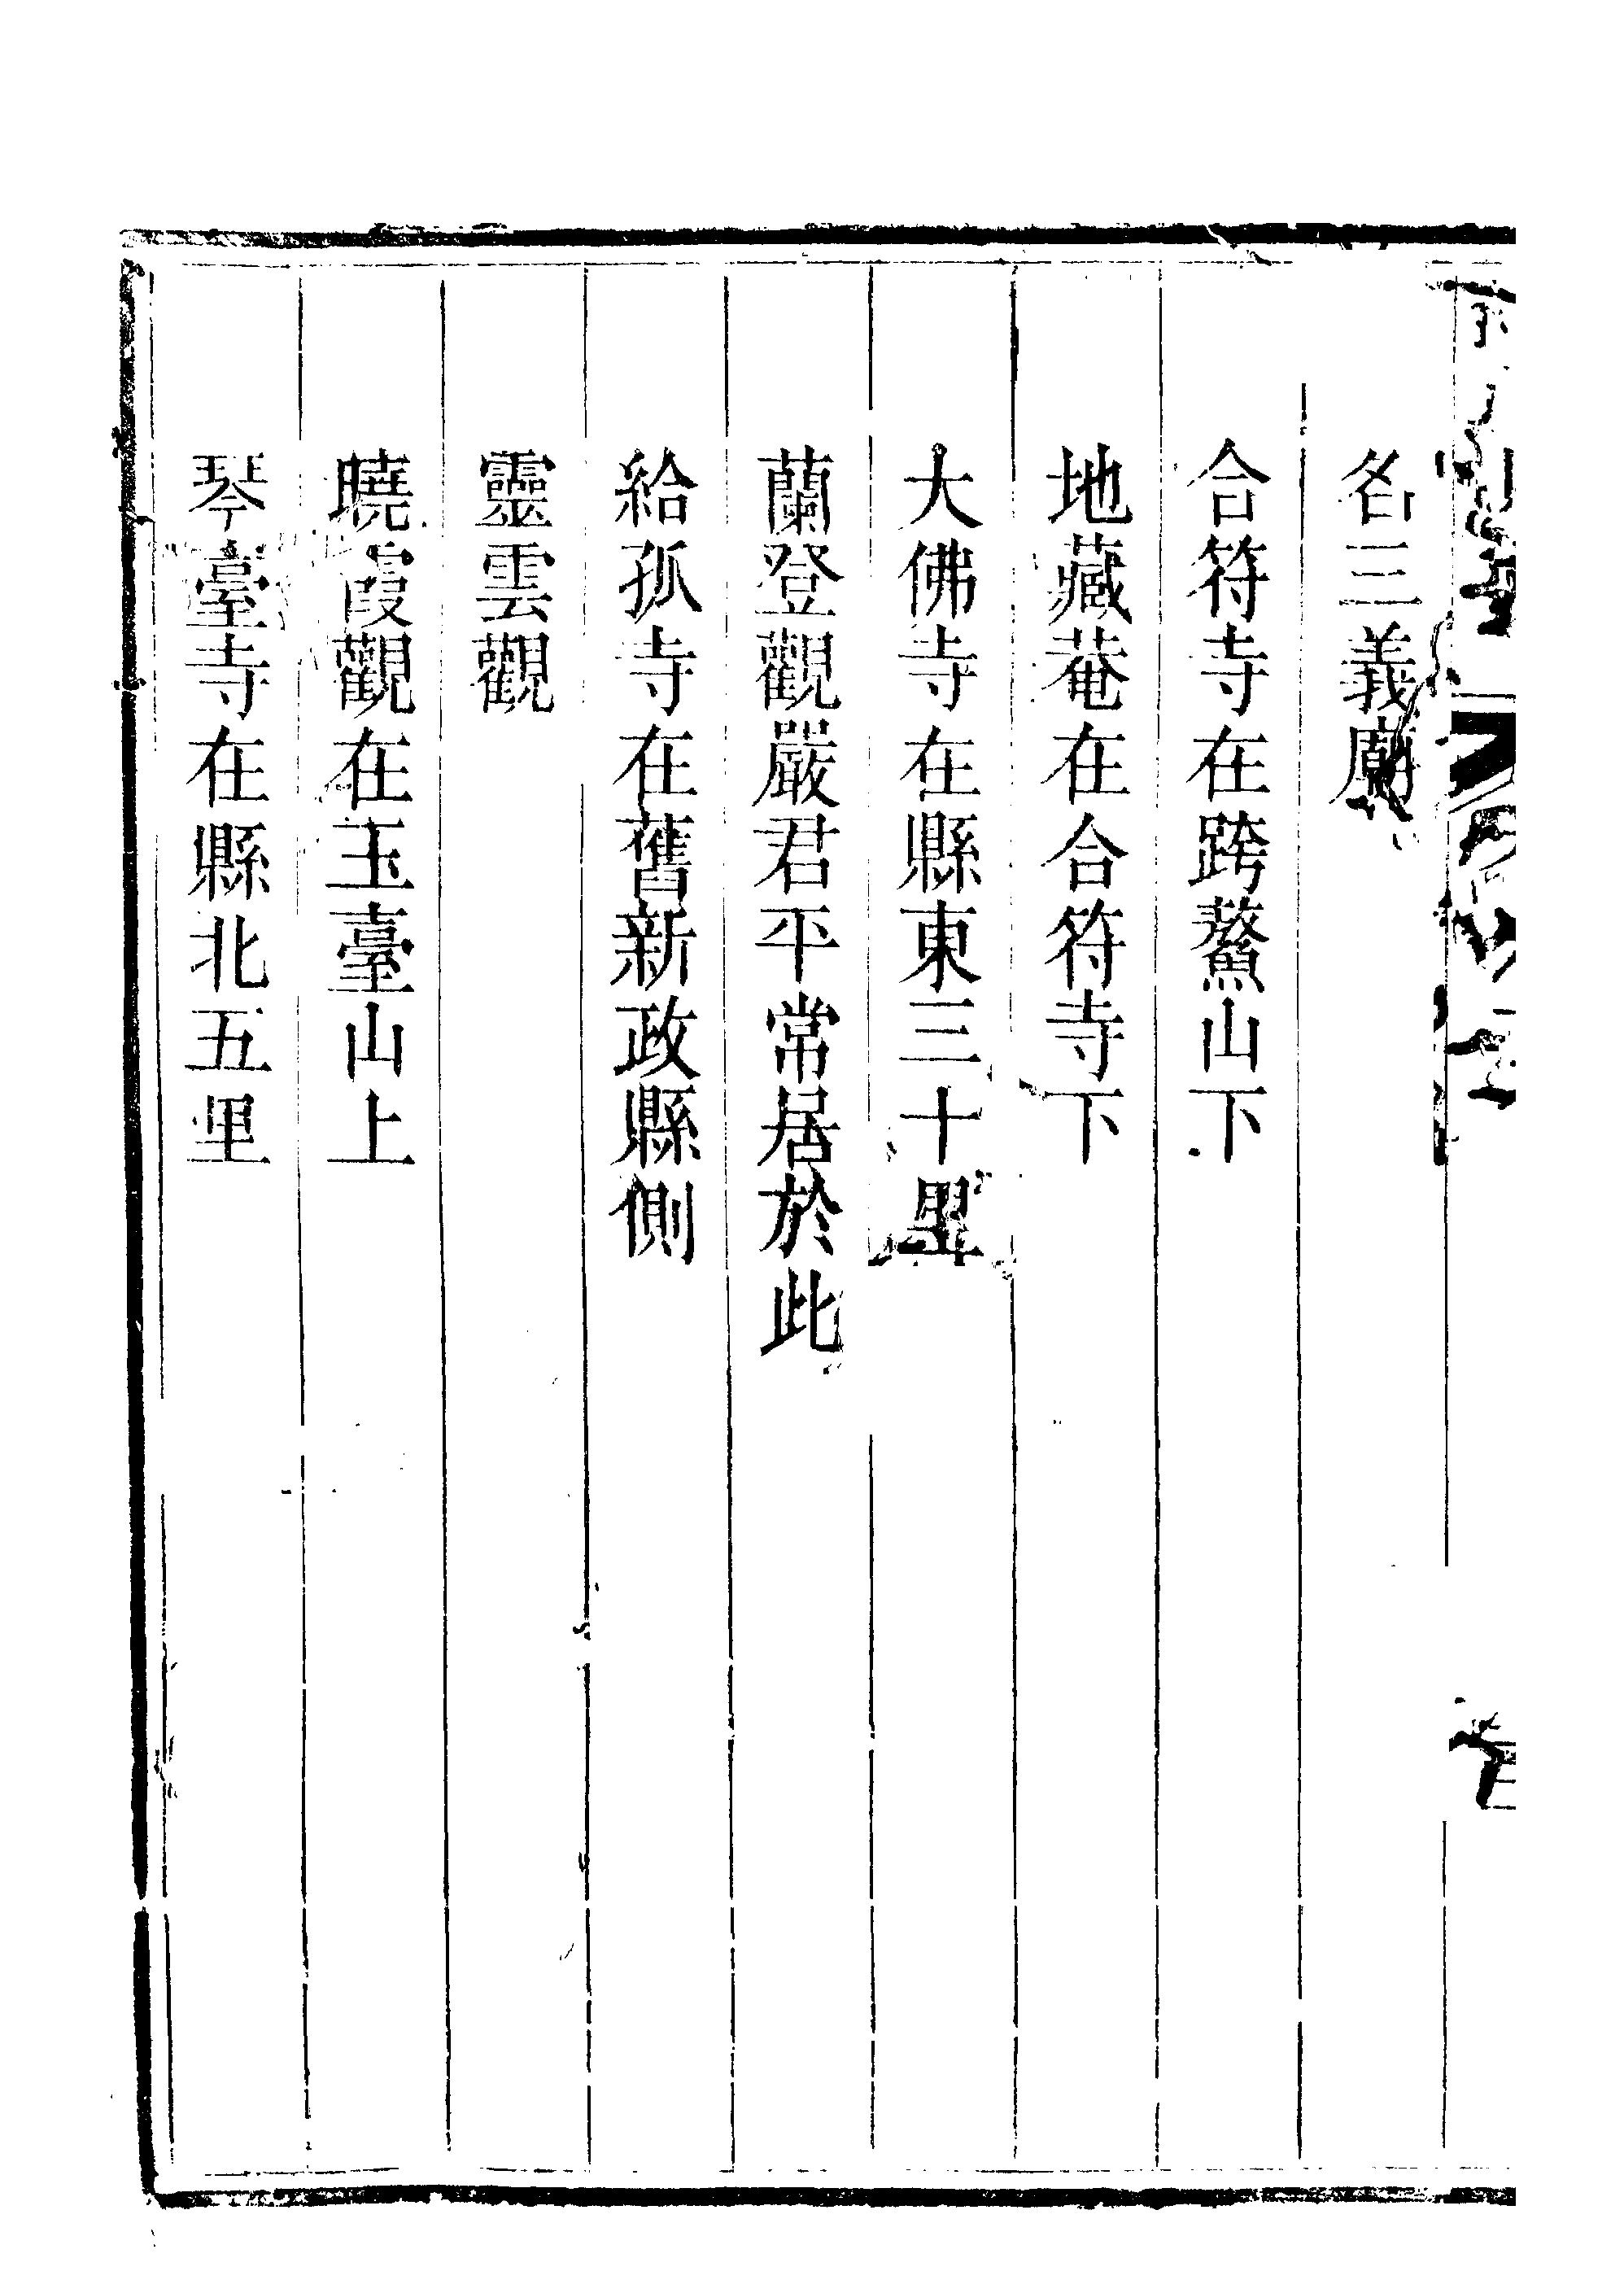 名三義廟
合符寺在跨鰲山下
地藏菴在合符寺下
大佛寺在縣東三十里
蘭登觀嚴君平常居於此
給孤寺在舊新政縣側
靈雲觀
曉霞觀在玉臺山上
琴臺寺在縣北五里